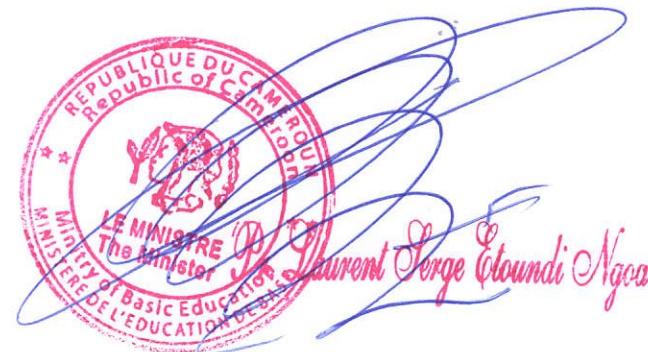 REPUBLIQUE DU CAMEROUN
Republic of Cameroon
LE MINISTRE
The Minister
Ministry of Basic Education
MINISTERE DE L'EDUCATION DE BASE
Pr Laurent Serge Etoundi Ngoa